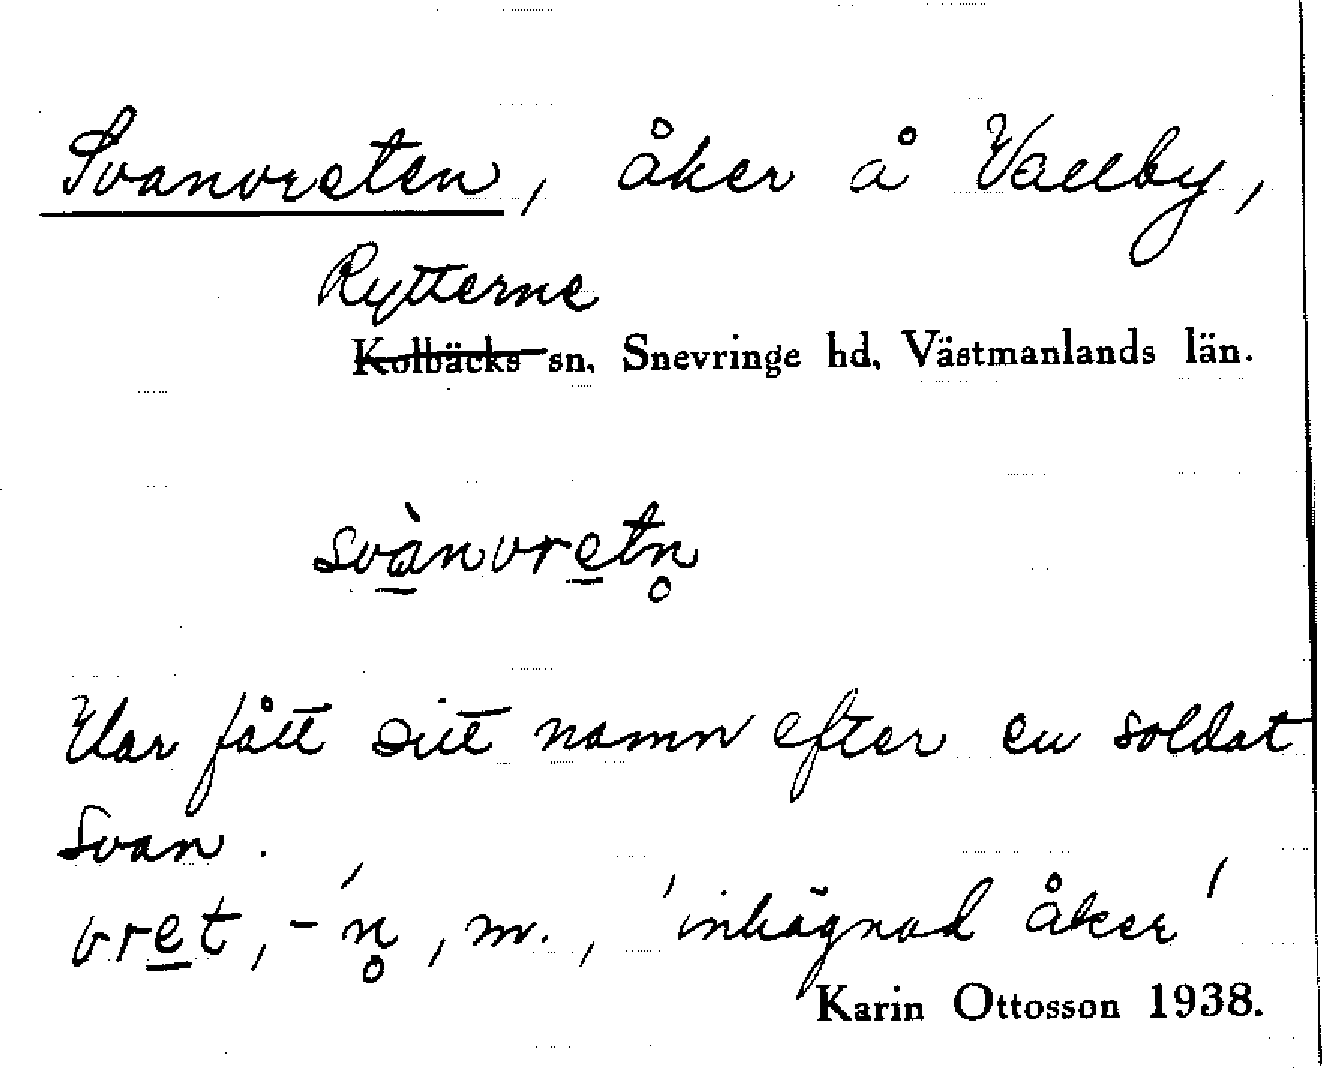 Svanvreten, åker å Vallby,
Rytterne
Kolbäcks sn, Snevringe hd, Västmanlands län.
svànvretn̥
Har fått sitt namn efter en soldat
Svan.
vret, -´n̥, m., 'inhägnad åker'
Karin Ottosson 1938.